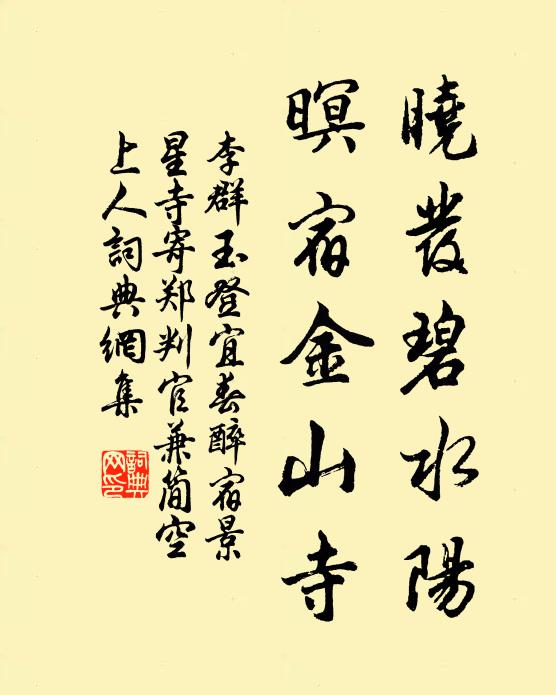 曉發碧水陽
暝宿金山寺
李群玉登宜春醉宿景
星寺寄郑判官兼简空
上人詞典網集
詞典网印